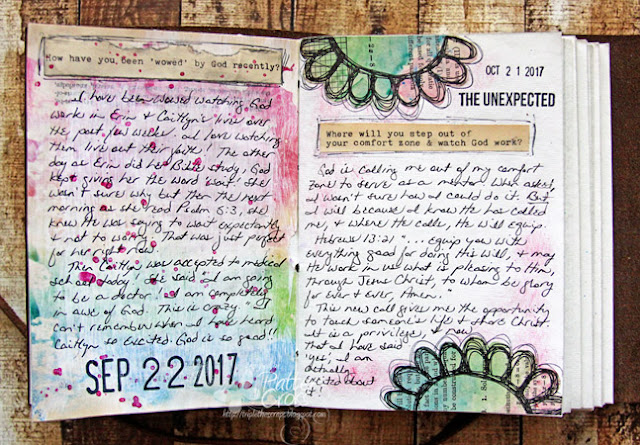 How have you been 'wowed' by God recently?
I have been wowed watching God
works in Erin & Caitlyn's lives over
the past few weeks. I love watching
them live out their faith! The other
day as Erin did her Bible study, God
kept giving her the word 'wait'. She
wasn't sure why but then the next
morning as she read Psalm 5:3, she
knew He was saying to wait expectantly
& not to worry. That was just perfect
for her right now.
Then Caitlyn was accepted to medical
school today! She said "I am going
to be a doctor". I am completely
in awe of God. This is crazy. I
can't remember when I have heard
Caitlyn so excited. God is so good!!
SEP 22 2017
http://triplethescraps.blogspot.com
OCT 21 2017
THE UNEXPECTED
Where will you step out of
your comfort zone & watch God work?
God is calling me out of my comfort
zone to serve as a mentor. When asked,
I wasn't sure how I could do it. But
I will because I know He has called
me, & where He calls, He will equip.
Hebrews 13:21 "... equip you with
everything good for doing His will, & may
He work in us what is pleasing to Him,
through Jesus Christ, to whom be glory
for ever & ever, Amen."
This new call gives me the opportunity
to touch someone's life & share Christ.
It is a privilege, & now
that I have said
'yes', I am
actually
excited about
it!